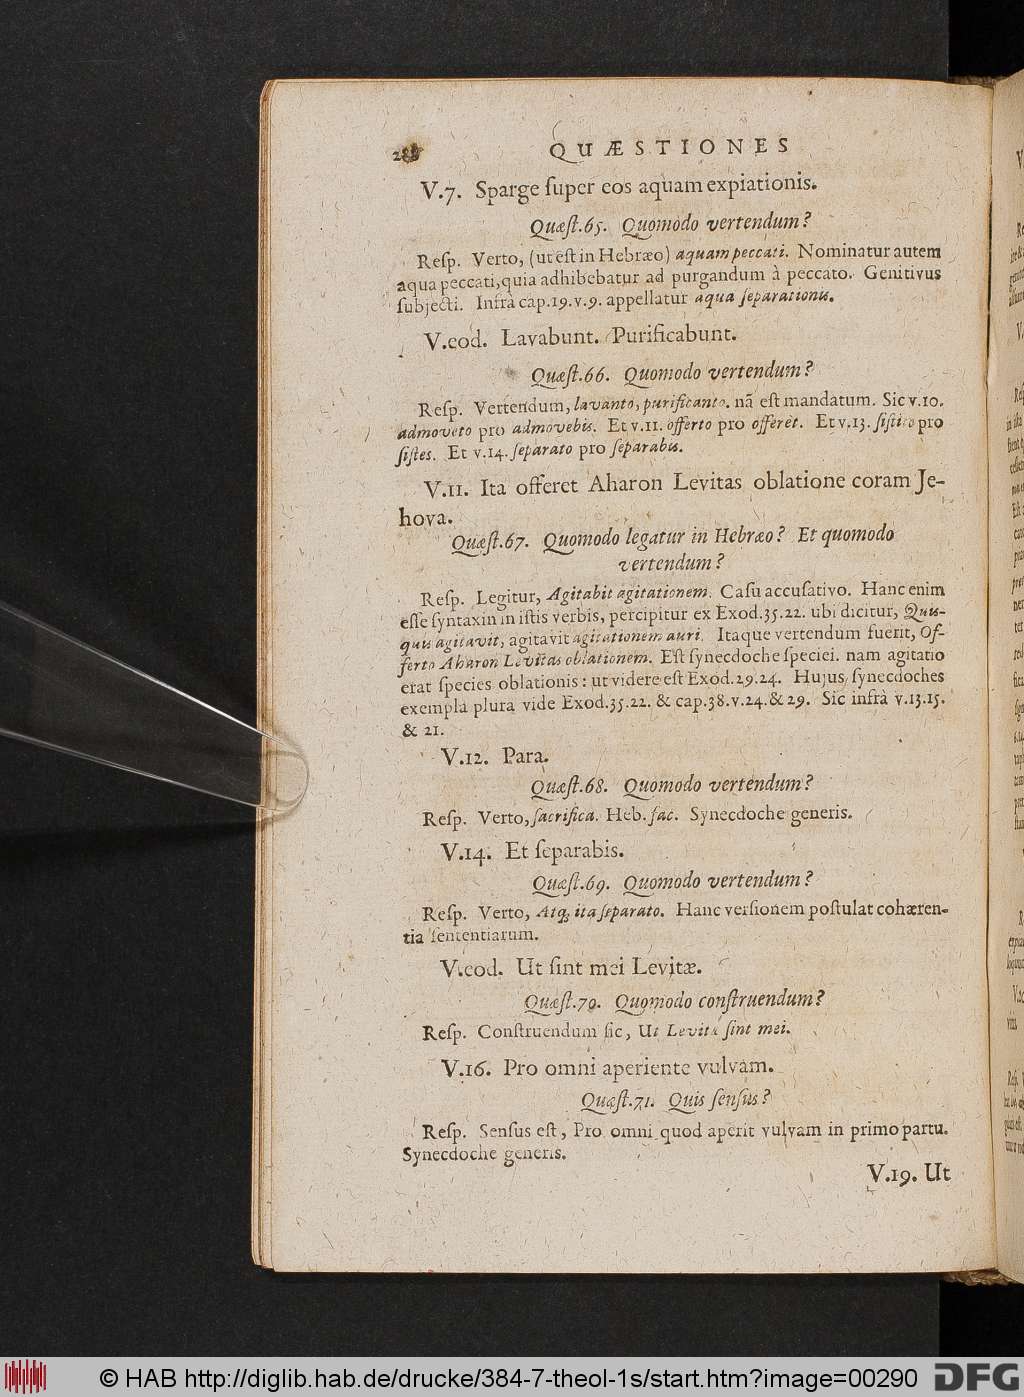 QUÆSTIONES
V.7. Sparge ſuper eos aquam expiationis.
Quæſt.65. Quomodo vertendum?
Reſp. Verto, (ut eſt in Hebræo) aquam peccati. Nominatur autem
aqua peccati, quia adhibebatur ad purgandum à peccato. Genitivus
ſubjecti. Infrà cap.19.v.9. appellatur aqua ſeparationis.
V.eod. Lavabunt. Purificabunt.
Quæſt.66. Quomodo vertendum?
Reſp. Vertendum, lavanto, purificanto. nã eſt mandatum. Sic v.10.
admoveto pro admovebis. Et v.11. offerto pro offeret. Et v.13. ſiſtito pro
ſiſtes. Et v.14. ſeparato pro ſeparabis.
V.11. Ita offeret Aharon Levitas oblatione coram Je-
hova.
Quæſt.67. Quomodo legatur in Hebræo? Et quomodo
vertendum?
Reſp. Legitur, Agitabit agitationem. Caſu accuſativo. Hanc enim
eſſe ſyntaxin in iſtis verbis, percipitur ex Exod.35.22. ubi dicitur, Quis-
quis agitavit, agitavit agitationem auri. Itaque vertendum fuerit, Of-
ferto Aharon Levitas oblationem. Eſt ſynecdoche ſpeciei. nam agitatio
erat ſpecies oblationis: ut videre eſt Exod.29.24. Hujus ſynecdoches
exempla plura vide Exod.35.22. & cap.38.v.24.& 29. Sic infrà v.13.15.
& 21.
V.12. Para.
Quæſt.68. Quomodo vertendum?
Reſp. Verto, ſacrifica. Heb. fac. Synecdoche generis.
V.14. Et ſeparabis.
Quæſt.69. Quomodo vertendum?
Reſp. Verto, Atq; ita ſeparato. Hanc verſionem poſtulat cohæren-
tia ſententiarum.
V.eod. Ut ſint mei Levitæ.
Quæſt.70. Quomodo conſtruendum?
Reſp. Conſtruendum ſic, Ut Levitæ ſint mei.
V.16. Pro omni aperiente vulvam.
Quæſt.71. Quis ſenſus?
Reſp. Senſus eſt, Pro omni quod aperit vulvam in primo partu.
Synecdoche generis.
V.19. Ut
© HAB http://diglib.hab.de/drucke/384-7-theol-1s/start.htm?image=00290
DFG